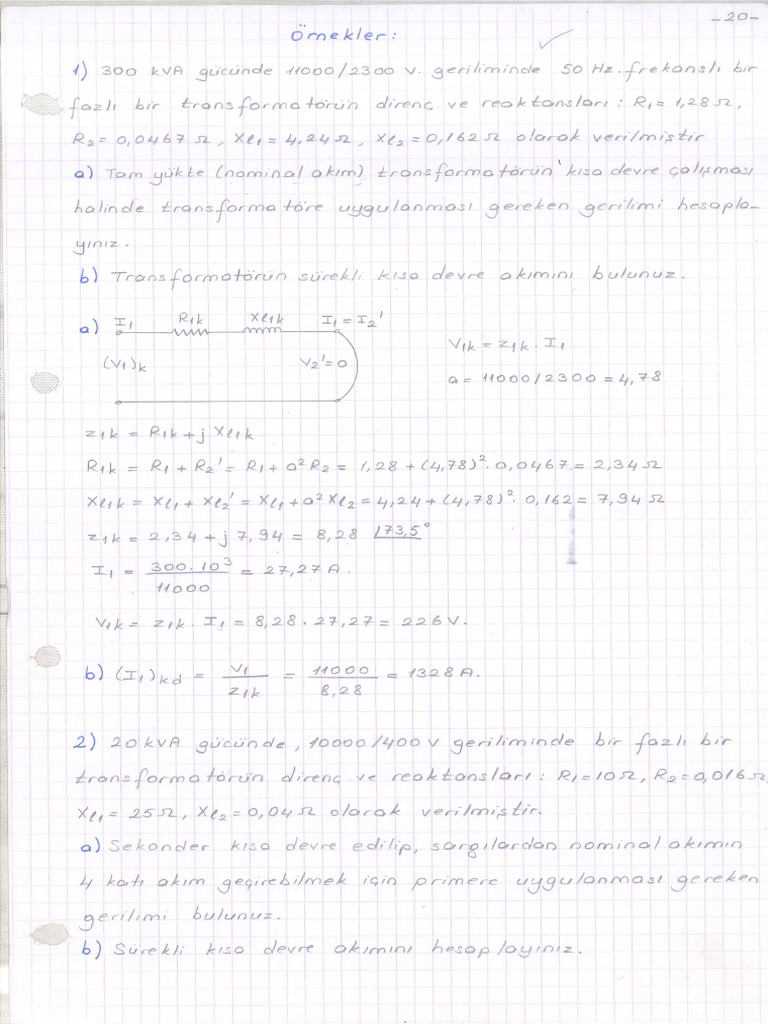 -20-
Örnekler:
1) 300 kVA gücünde 11000/2300 V. geriliminde 50 Hz. frekanslı bir
fazlı bir transformatörün direnç ve reaktansları: R₁=1,28 Ω,
R₂=0,0467 Ω, Xℓ₁=4,24 Ω, Xℓ₂=0,162 Ω olarak verilmiştir.
a) Tam yükte (nominal akım) transformatörün kısa devre çalışması
halinde transformatöre uygulanması gereken gerilimi hesapla-
yınız.
b) Transformatörün sürekli kısa devre akımını bulunuz.
a) I₁ R₁k Xℓ₁k I₁=I₂'
(V₁)k V₂'=0
V₁k = z₁k . I₁
a = 11000/2300 = 4,78
z₁k = R₁k+j Xℓ₁k
R₁k = R₁ + R₂' = R₁ + a² R₂ = 1,28 + (4,78)². 0,0467 = 2,34 Ω
Xℓ₁k = Xℓ₁ + Xℓ₂' = Xℓ₁ + a² Xℓ₂ = 4,24 + (4,78)². 0,162 = 7,94 Ω
z₁k = 2,34 + j 7,94 = 8,28 ∠73,5°
I₁ = 300.10³ / 11000 = 27,27 A.
V₁k = z₁k . I₁ = 8,28 . 27,27 = 226 V.
b) (I₁)kd = V₁ / z₁k = 11000 / 8,28 = 1328 A.
2) 20 kVA gücünde, 10000/400 V geriliminde bir fazlı bir
transformatörün direnç ve reaktansları: R₁=10Ω, R₂=0,016Ω,
Xℓ₁=25Ω, Xℓ₂=0,04Ω olarak verilmiştir.
a) Sekonder kısa devre edilip, sargılardan nominal akımın
4 katı akım geçirebilmek için primere uygulanması gereken
gerilimi bulunuz.
b) Sürekli kısa devre akımını hesaplayınız.